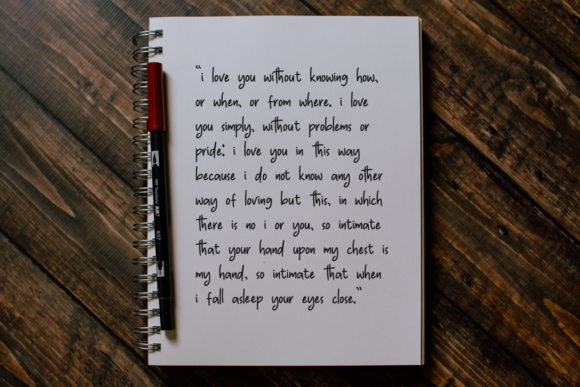 "i love you without knowing how,
or when, or from where. i love
you simply, without problems or
pride: i love you in this way
because i do not know any other
way of loving but this, in which
there is no i or you, so intimate
that your hand upon my chest is
my hand, so intimate that when
i fall asleep your eyes close."